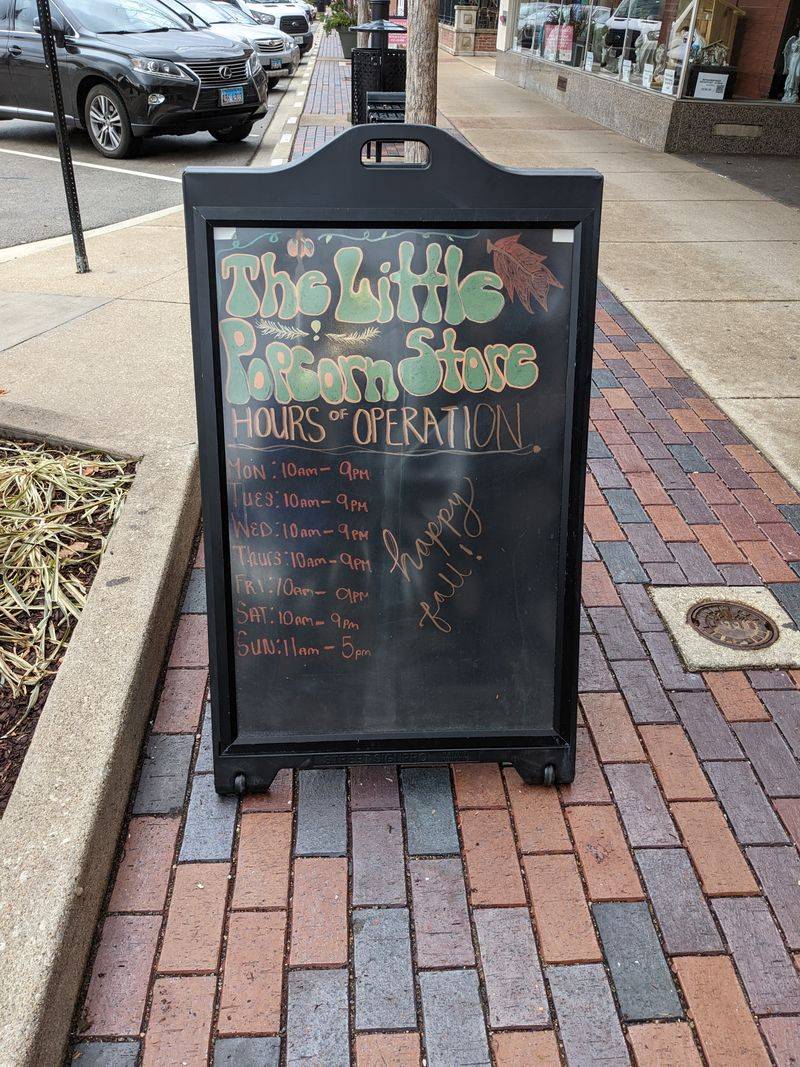 The Little
Popcorn Store
HOURS OF OPERATION
MON: 10AM - 9PM
TUES: 10AM - 9PM
WED: 10AM - 9PM
Thurs: 10AM - 9PM
FRI: 10AM - 9PM
SAT: 10AM - 9PM
SUN: 11AM - 5pm
happy
fall!